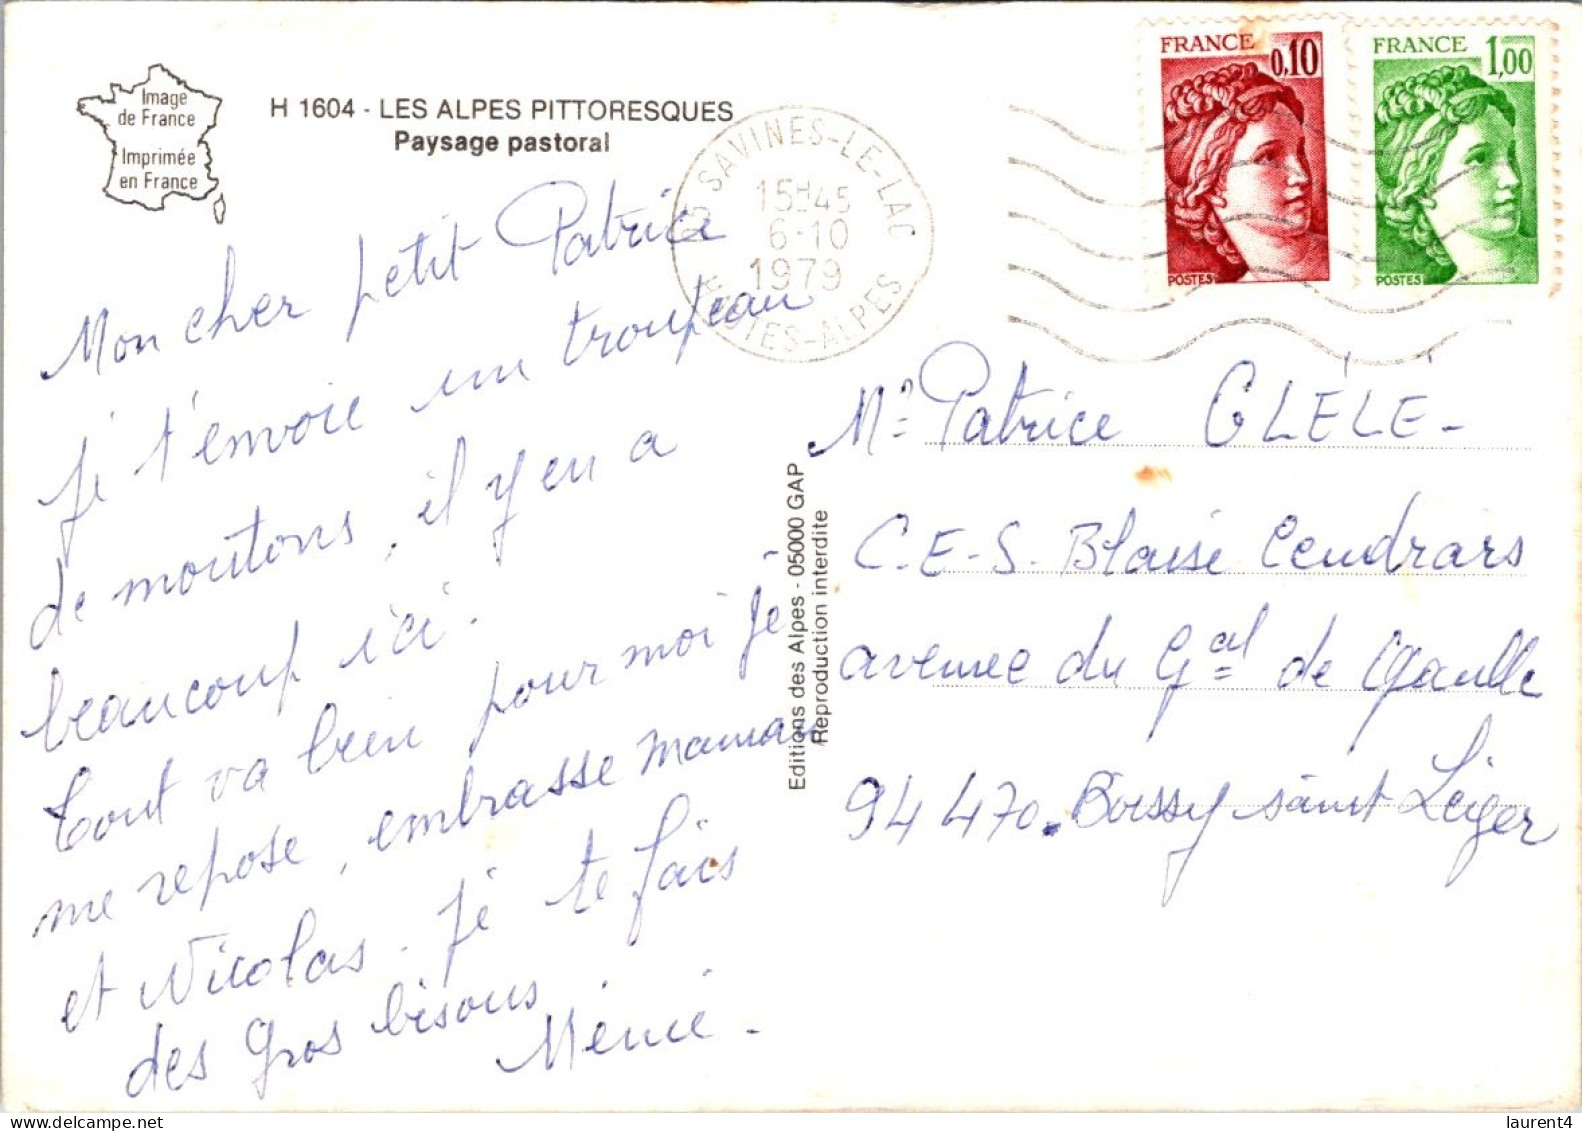 Image
de France
Imprimée
en France
H 1604 - LES ALPES PITTORESQUES
Paysage pastoral
SAVINES-LE-LAC
15H45
6-10
1979
HAUTES-ALPES
FRANCE
0,10
POSTES
FRANCE
1,00
POSTES
Mon cher petit Patrice
je t'envoie un troupeau
de moutons, il y en a
beaucoup ici.
Tout va bien pour moi je
me repose, embrasse maman
et Nicolas. je te fais
des gros bisous
Mémé -
Editions des Alpes - 05000 GAP
Reproduction interdite
Mr Patrice GLÉLÉ -
C.E-S. Blaise Cendrars
avenue du Gal de Gaulle
94 470. Boissy saint Léger
laurent4